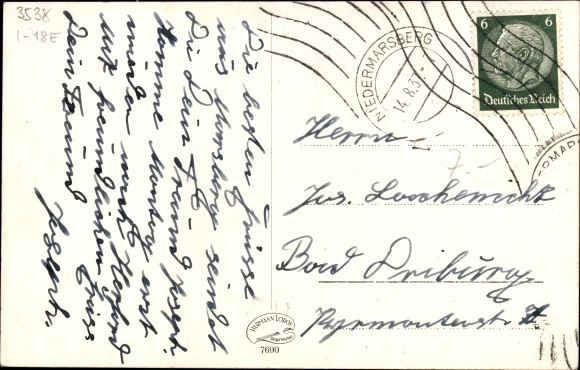 3538
I-18E
Die besten Grüsse
aus Marsberg sendet
Dir Dein Freund Joseph.
Komme Montag erst
wieder nach
Mit freundlichem Gruss
Dein Freund
Joseph.
NIEDERMARSBERG
14.8.3
6 6
Deutsches Reich
7.-
Herrn
Jos.
Bad Driburg
Pyrmonterstr
HERMANN LORCH
DORTMUND
7690